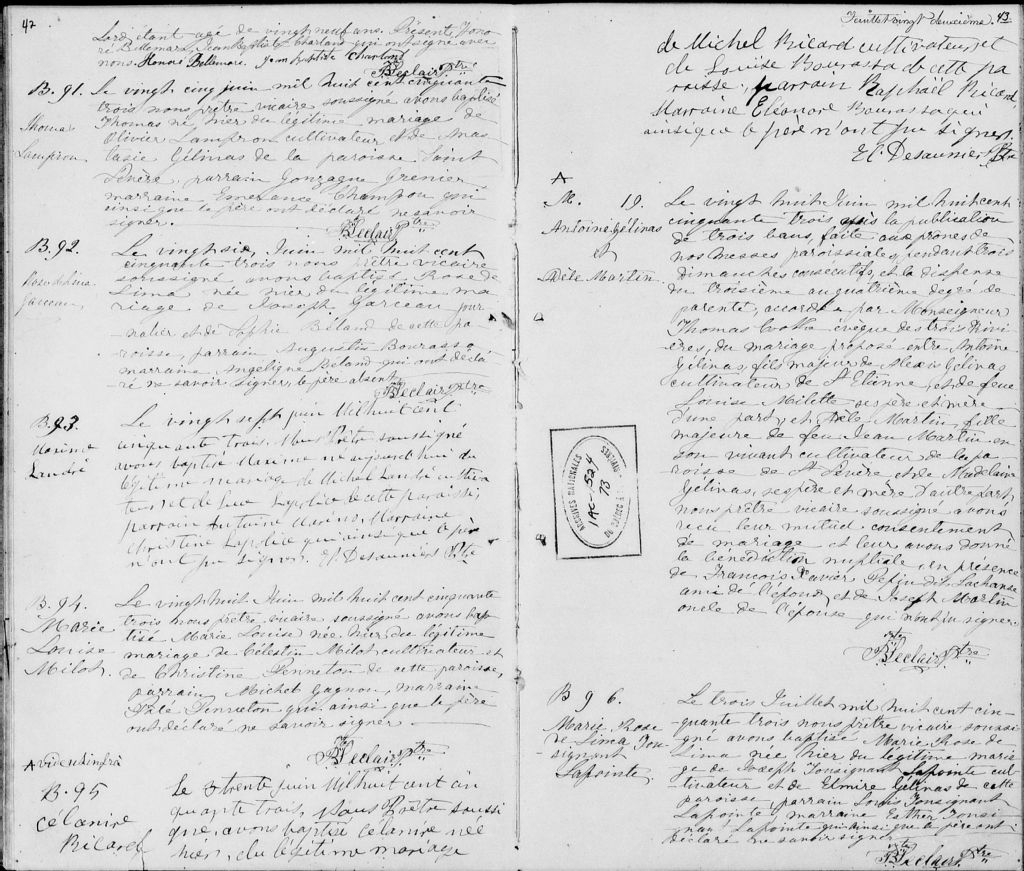 42
Lord, étant agé de vingt neuf ans. Présents Hono-
ré Bellemare, Jean Baptiste Charland qui ont signé avec
nous. Honoré Bellemare. Jean Baptiste Charland
Leclair Ptre
B. 91.
Thomas
Lampron
Le vingt cinq juin mil huit cent cinquante
trois nous prêtre vicaire soussigné avons baptisé
Thomas né hier du légitime mariage de
Olivier Lampron cultivateur & de Anas-
tasie Gélinas de la paroisse Saint
Sévère, parrain Gonzague Grenier
marraine Emerance Champou qui
ainsi que le père ont déclaré ne savoir
signer.
Leclair Ptre
B. 92.
Rose de Lima
Garceau
Le vingt six, Juin mil huit cent
cinquante-trois nous prêtre vicaire
soussigné avons baptisé Rose de
Lima née hier du légitime ma-
riage de Joseph Garceau jour-
nalier et de Sophie Béland de cette pa-
roisse, parrain Augustin Bourassa
marraine Angélique Béland qui ont décla-
ré ne savoir signer, le père absent
Leclair Ptre
B. 93.
Maxime
Landré
Le vingt sept juin Mil huit cent
cinquante trois, Nous Prêtre soussigné
avons baptisé Maxime né aujourd'hui du
légitime mariage de Michel Landré cultiva
teur et de Luce Lapolice de cette paroisse,
parrain Antoine Marraine
Christine Lapolice qui ainsi que le père
n'ont pu signer. El. Desaunier Ptre
B. 94.
Marie
Louise
Milot.
Le vingt huit Juin mil huit cent cinquante
trois nous prêtre vicaire soussigné avons bap-
tisé Marie Louise née hier du légitime
mariage de Célestin Milot cultivateur et
de Christine Penneton de cette paroisse,
parrain Michel Gagnon, marraine
Adèle Penneton qui ainsi que le père
ont déclaré ne savoir signer
Leclair Ptre
A vide infrà
B. 95
Célanire
Ricard
Le trente juin Mil huit cent cin
quante trois, Nous Prêtre soussi
gné, avons baptisé Célanire née
hier, du légitime mariage
Feuillet vingt deuxième. 43
de Michel Ricard cultivateur, et
de Louise Bourassa de cette pa
roisse. parrain Raphaël Ricard
Marraine Eléonore Bourassa qui
ainsi que le père n'ont pu signer.
El. Desaunier Ptre
A
M. 19.
Antoine Gélinas
et
Adèle Martin
Le vingt huit Juin mil huit cent
cinquante trois après la publication
de trois bans, faite aux prônes de
nos messes paroissiales, pendant trois
dimanches consécutifs, et la dispense
du troisième au quatrième degré de
parenté, accordée par Monseigneur
Thomas Cooke évêque des trois Rivi-
ères, du mariage proposé entre Antoine
Gélinas, fils majeur de Alexis Gélinas
cultivateur de St Etienne et de feue
Louise Milette ses père et mère
d'une part, et Adèle Martin, fille
majeure de feu Jean Martin en
son vivant cultivateur de la pa
roisse de St Sévère et de Madelaine
Gélinas, ses père et mère d'autre part,
nous prêtre vicaire soussigné avons
reçu leur mutuel consentement
de mariage et leur avons donné
la bénédiction nuptiale en présence
de François Xavier Pepin dit Lachanse
ami de l'époux, et de Joseph Martin
oncle de l'épouse qui n'ont su signer.
Leclair Ptre
ARCHIVES NATIONALES
DU QUÉBEC À
78
B 96.
Marie Rose
de Lima Tou-
signant
Lapointe
Le trois Juillet mil huit cent cin-
quante trois nous prêtre vicaire soussi-
gné avons baptisé Marie Rose de
Lima née hier du légitime maria-
ge de Joseph Tousignant Lapointe cul-
tivateur et de Elmire Gélinas de cette
paroisse, parrain Louis Tousignant
Lapointe, marraine Esther Tousi-
gnan Lapointe qui ainsi que le père ont
déclaré ne savoir signer
Leclair Ptre